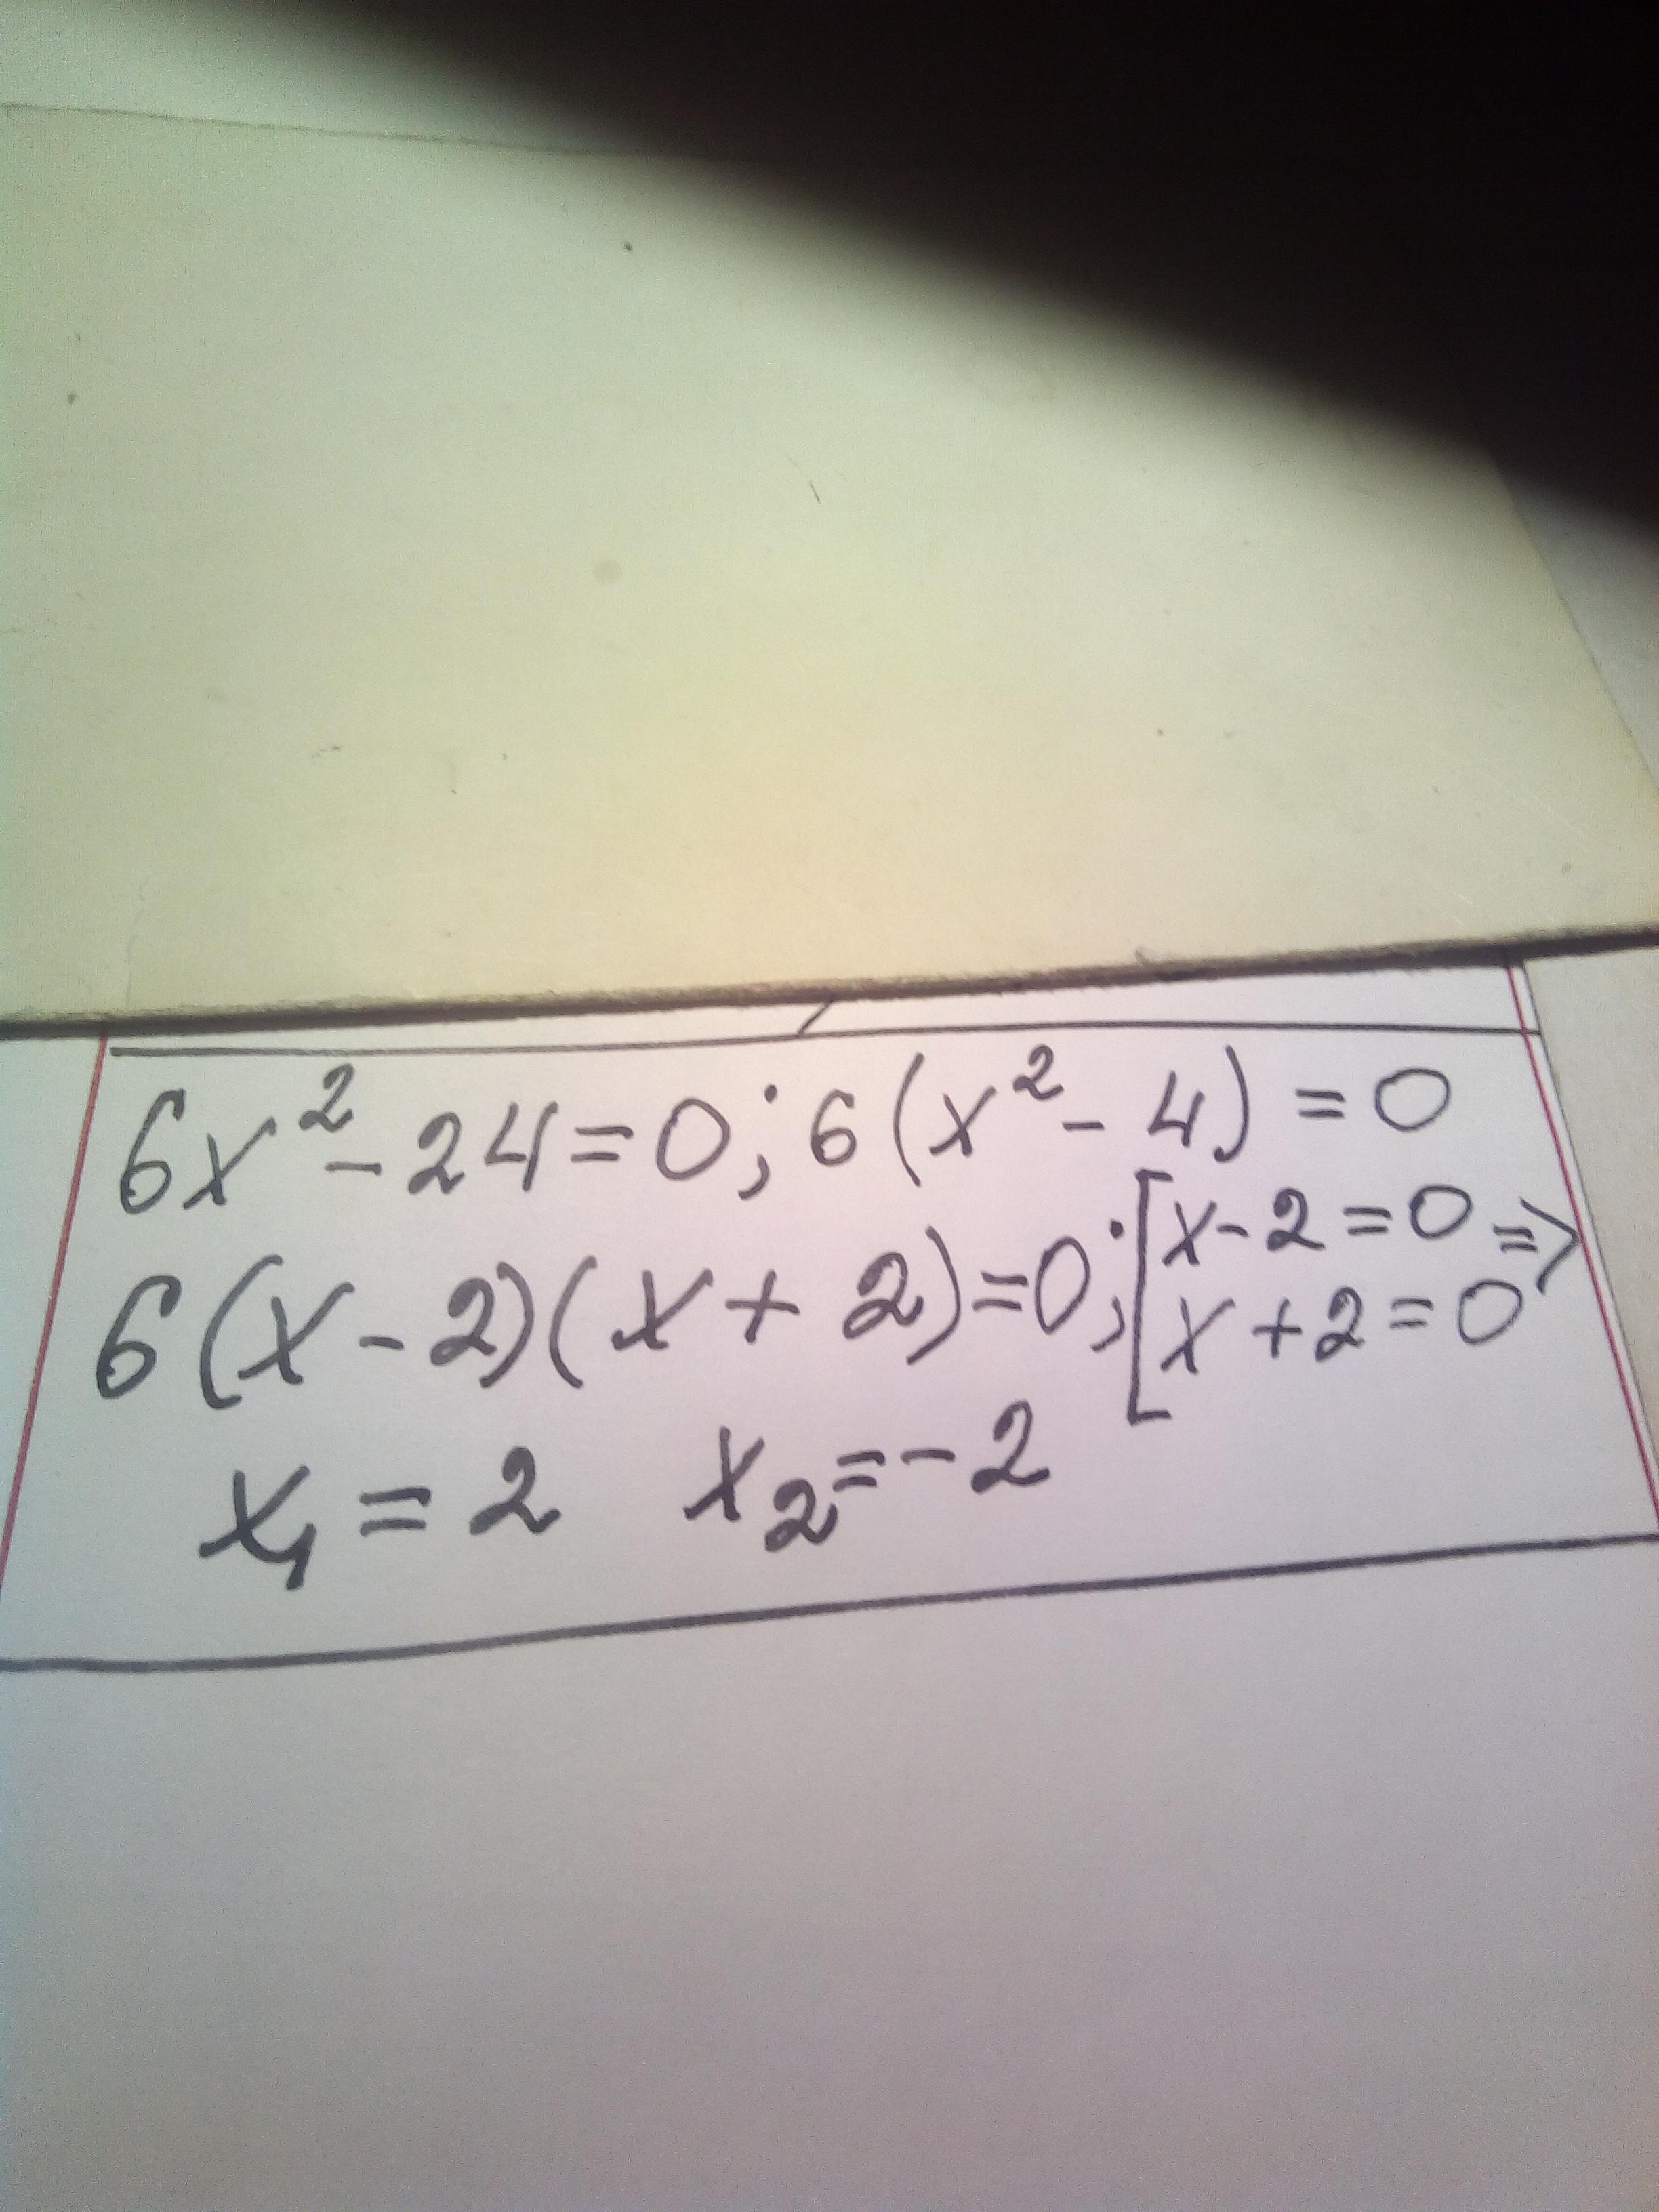 6x²-24=0; 6(x²-4)=0
6(x-2)(x+2)=0; [x-2=0 =>
x+2=0
x₁=2 x₂=-2